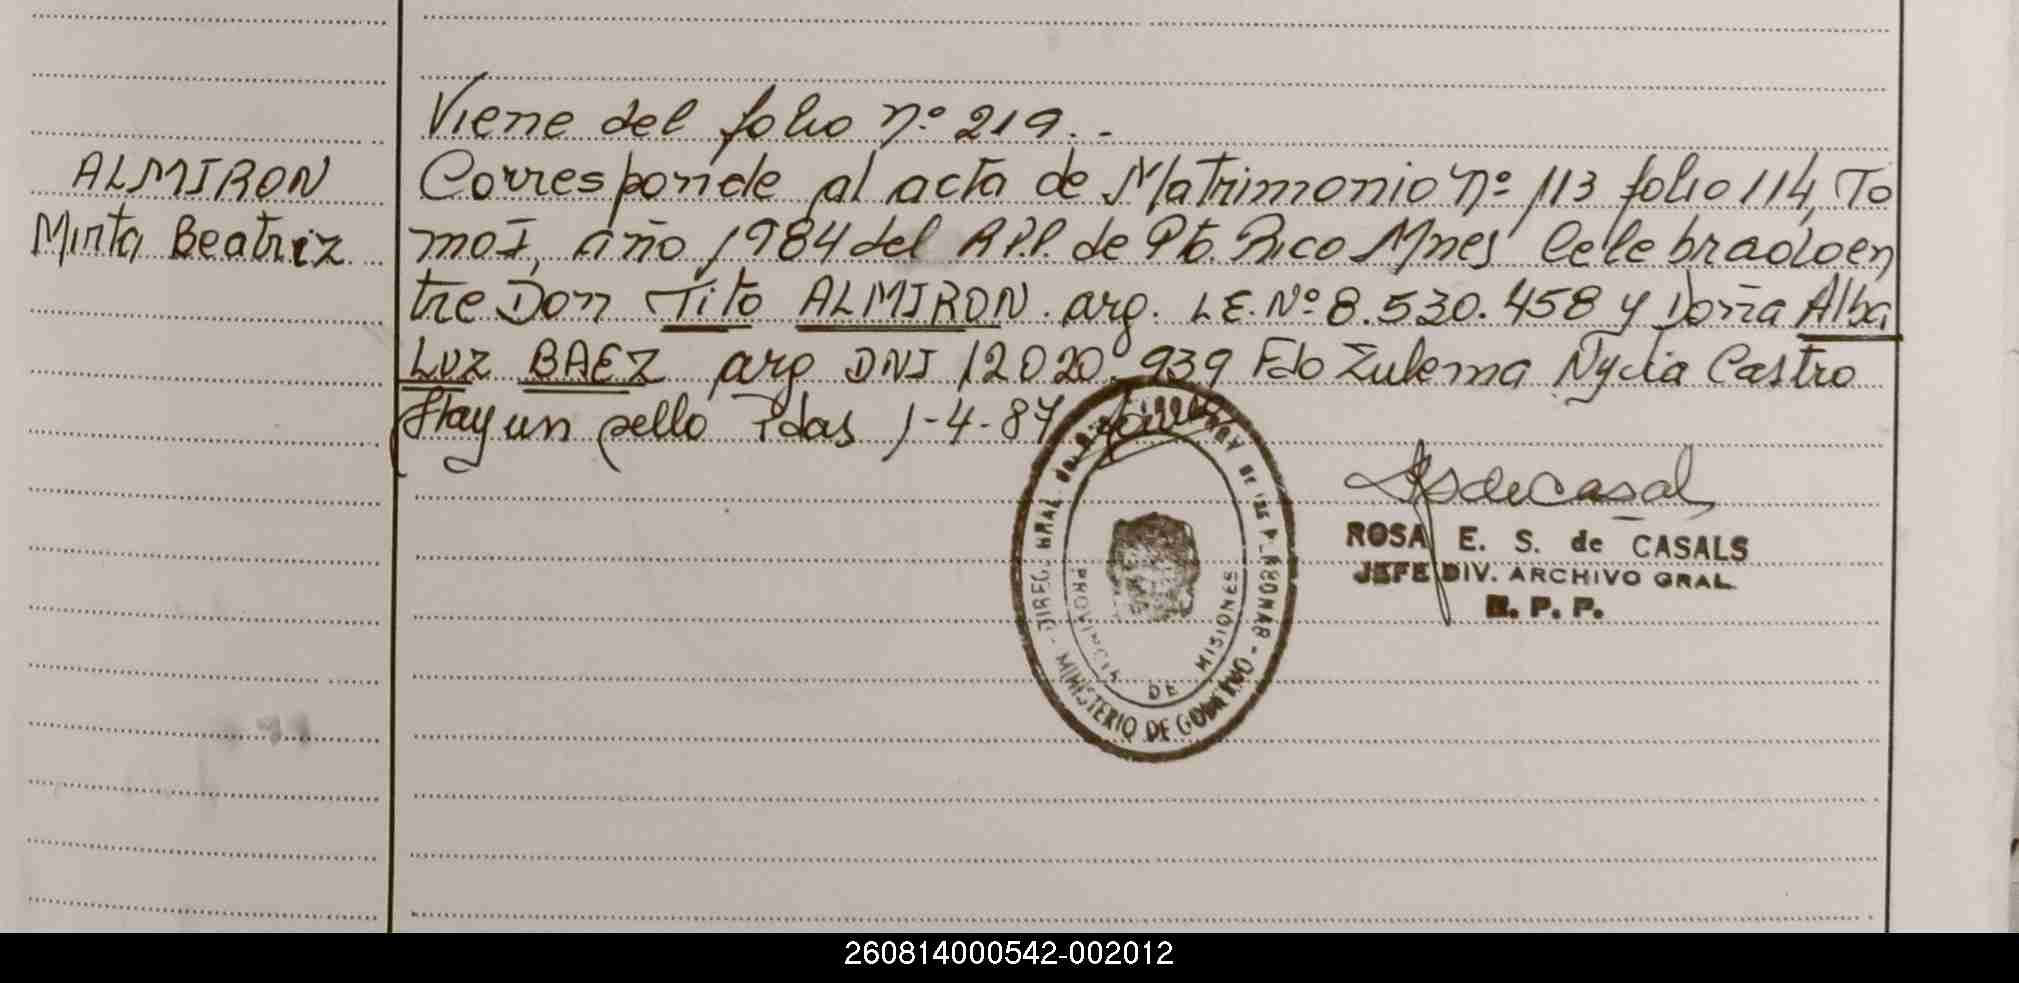 Viene del folio nº 219..
ALMIRON
Mirta Beatriz
Corresponde al acta de Matrimonio nº 113 folio 114, To
mo I, año 1984 del R.P.P. de Pto. Rico Mnes Celebrado en
tre Don Tito ALMIRON. arg. L.E. Nº 8.530.458 y Doña Alba
Luz BAEZ arg DNI 12020.939 Fdo Zulema Nydia Castro
Hay un sello Pdas 1-4-87
RdeCasal
ROSA E. S. de CASALS
JEFE DIV. ARCHIVO GRAL.
R. P. P.
DIREC. GRAL. DE LAS PERSONAS
MINISTERIO DE GOBIERNO
PROVINCIA DE MISIONES
260814000542-002012